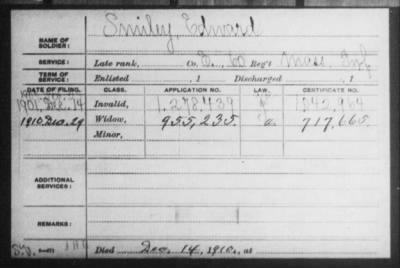 NAME OF SOLDIER: Smiley, Edward
SERVICE: Late rank, Co. E, 60 Reg't Mass. Inf
TERM OF SERVICE: Enlisted , 1 Discharged , 1
DATE OF FILING. CLASS. APPLICATION NO. LAW. CERTIFICATE NO.
1901 Dec. 14 Invalid, 1,278,439 1042,964
1910. Dec. 29 Widow, 955,235. 717,665.
Minor,
ADDITIONAL SERVICES:
REMARKS:
Died Dec. 14, 1910, at